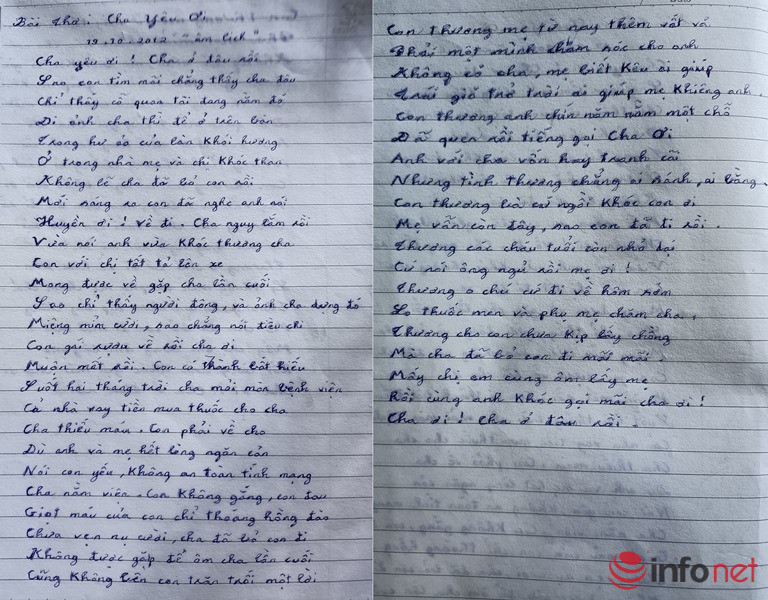 Bài Thơ: Cha Yêu Ơi
19.10.2012 "âm lịch"
Cha yêu ơi! Cha ở đâu rồi
Sao con tìm mãi chẳng thấy cha đâu
Chỉ thấy cỗ quan tài đang nằm đó
Di ảnh cha thì để ở trên bàn
Trong hư ảo của làn khói hương
Ở trong nhà mẹ và chị khóc than
Không lẽ cha đã bỏ con rồi
Mới sáng ra con đã nghe anh nói
Huyền ơi! về đi. Cha nguy lắm rồi
Vừa nói anh vừa khóc thương cha
Con với chị tất tả lên xe
Mong được về gặp cha lần cuối
Sao chỉ thấy người đông, và ảnh cha dựng đó
Miệng mỉm cười, sao chẳng nói điều chi
Con gái rượu về rồi cha ơi
Muộn mất rồi. Con có thành bất hiếu
Suốt hai tháng trời cha mỏi mòn bệnh viện
Cả nhà vay tiền mua thuốc cho cha
Cha thiếu máu. Con phải về cho
Dù anh và mẹ hết lòng ngăn cản
Nói con yếu, không an toàn tính mạng
Cha nằm viện. Con không gắng, con đau
Giọt máu của con chỉ thoáng hồng đào
Chưa vẹn nụ cười, cha đã bỏ con đi
Không được gặp để ôm cha lần cuối
Cũng không bên con trăn trối một lời
Con thương mẹ từ nay thêm vất vả
Phải một mình chăm sóc cho anh
Không có cha, mẹ biết kêu ai giúp
Trái gió trở trời ai giúp mẹ khiêng anh.
Con thương anh chín năm nằm một chỗ
Đã quen rồi tiếng gọi Cha Ơi
Anh với cha vẫn hay tranh cãi
Nhưng tình thương chẳng ai sánh, ai bằng.
Con thương bà cứ ngồi khóc con ơi
Mẹ vẫn còn đây, sao con đã đi rồi.
Thương các cháu tuổi còn nhỏ dại
Cứ nói ông ngủ rồi mẹ ơi!
Thương o chú cứ đi về hôm sớm
Lo thuốc men và phụ mẹ chăm cha,
Thương cho con chưa kịp lấy chồng
Mà cha đã bỏ con đi mất mãi.
Mấy chị em cùng ôm lấy mẹ
Rồi cùng anh khóc gọi mãi cha ơi!
Cha ơi! Cha ở đâu rồi.
infonet